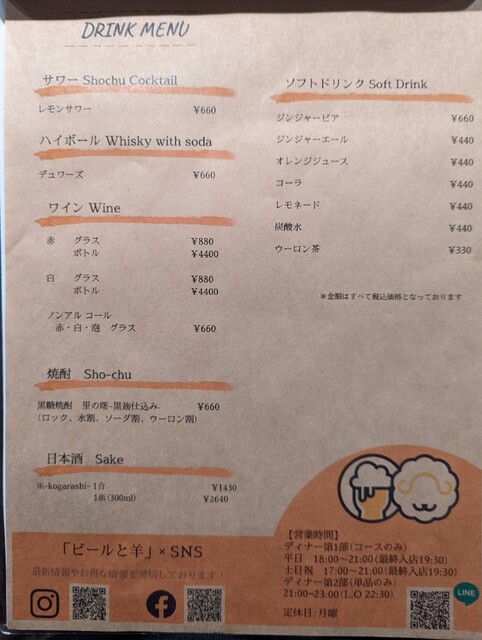 DRINK MENU
サワー Shochu Cocktail
レモンサワー ¥660
ハイボール Whisky with soda
デュワーズ ¥660
ワイン Wine
赤 グラス ¥880
ボトル ¥4400
白 グラス ¥880
ボトル ¥4400
ノンアルコール
赤・白・泡 グラス ¥660
焼酎 Sho-chu
黒糖焼酎 里の曙-黒麹仕込み- ¥660
(ロック、水割、ソーダ割、ウーロン割)
日本酒 Sake
-kogarashi- 1合 ¥1430
1瓶(300ml) ¥2640
ソフトドリンク Soft Drink
ジンジャービア ¥660
ジンジャーエール ¥440
オレンジジュース ¥440
コーラ ¥440
レモネード ¥440
炭酸水 ¥440
ウーロン茶 ¥330
※金額はすべて税込価格となっております
「ビールと羊」× SNS
最新情報やお得な情報を発信しております!
【営業時間】
ディナー第1部(コースのみ)
平日 18:00~21:00(最終入店19:30)
土日祝 17:00~21:00(最終入店19:30)
ディナー第2部(単品のみ)
21:00~23:00(L.O 22:30)
定休日:月曜
LINE